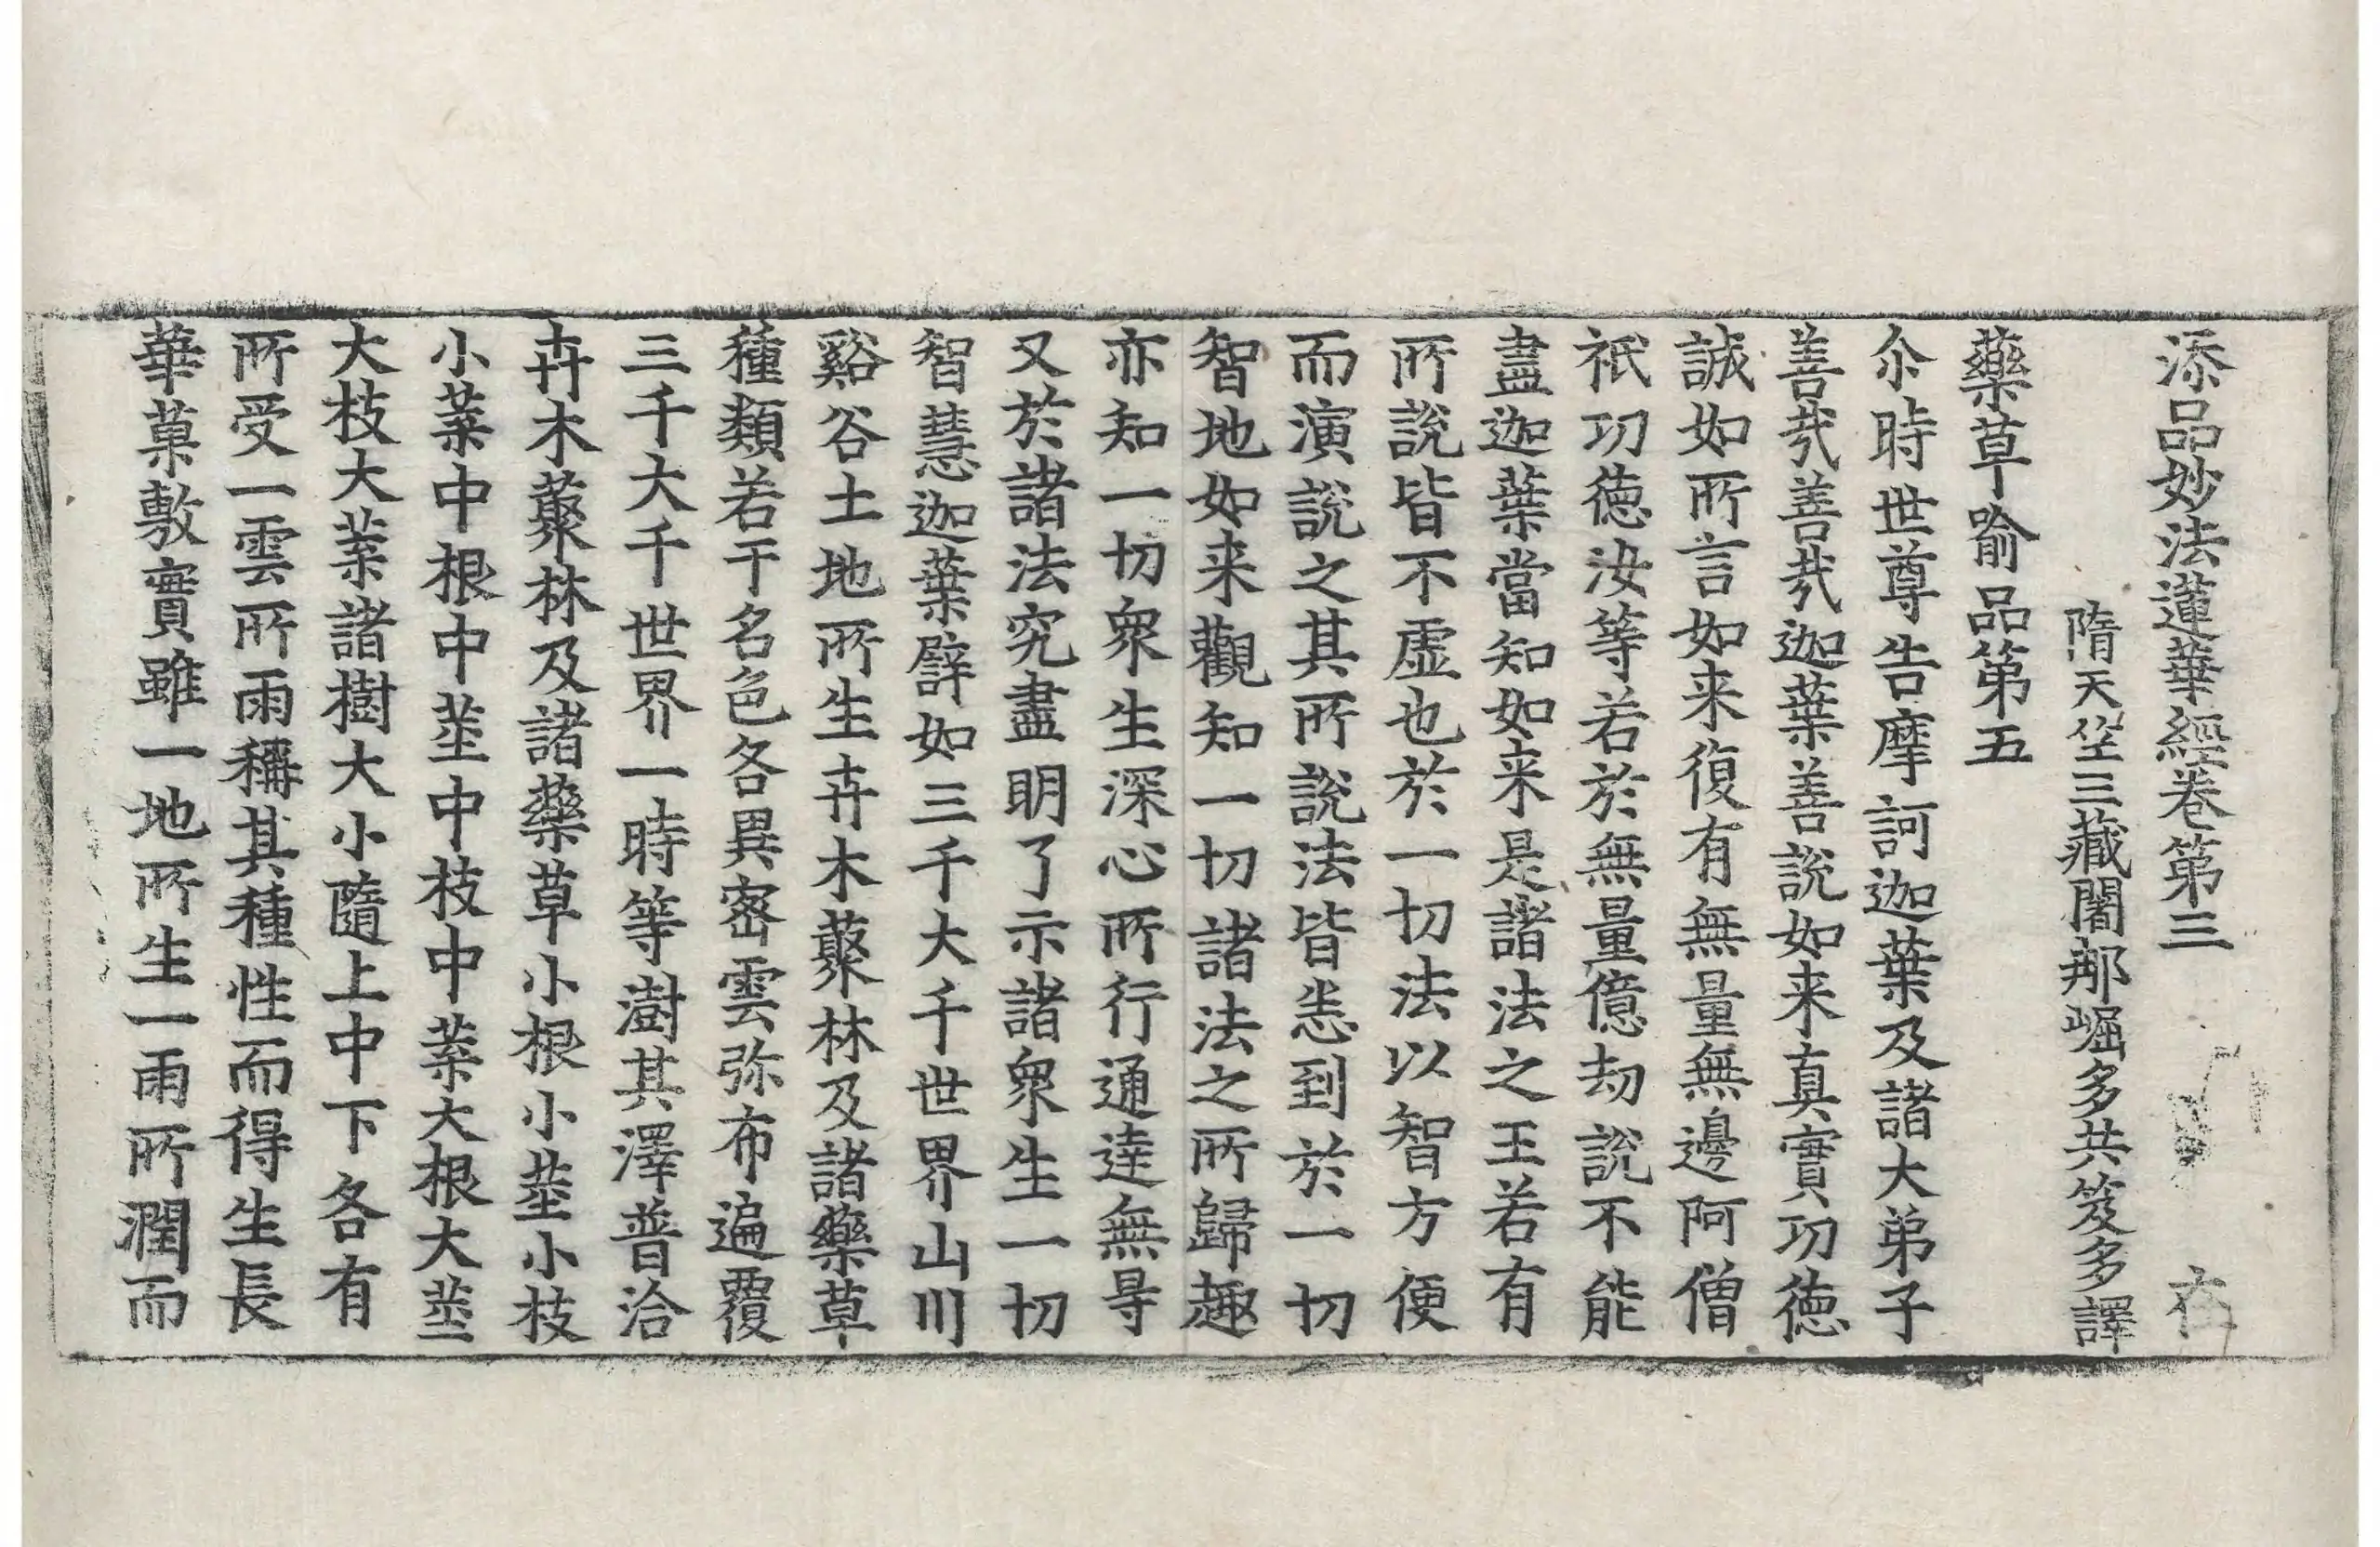 添品妙法蓮華經卷第三
隋天竺三藏闍那崛多共笈多譯
藥草喻品第五
尒時世尊告摩訶迦葉及諸大弟子
善㢤善㢤迦葉善說如来真實功德
誠如所言如来復有無量無邊阿僧
祇功德汝等若於無量億劫說不能
盡迦葉當知如来是諸法之王若有
所說皆不虛也於一切法以智方便
而演說之其所說法皆悉到於一切
智地如来觀知一切諸法之所歸趣
亦知一切衆生深心所行通達無㝵
又於諸法究盡明了示諸衆生一切
智慧迦葉譬如三千大千世界山川
谿谷土地所生卉木藂林及諸藥草
種類若干名色各異密雲弥布遍覆
三千大千世界一時等澍其澤普洽
卉木藂林及諸藥草小根小莖小枝
小葉中根中莖中枝中葉大根大莖
大枝大葉諸樹大小隨上中下各有
所受一雲所雨稱其種性而得生長
華菓敷實雖一地所生一雨所潤而